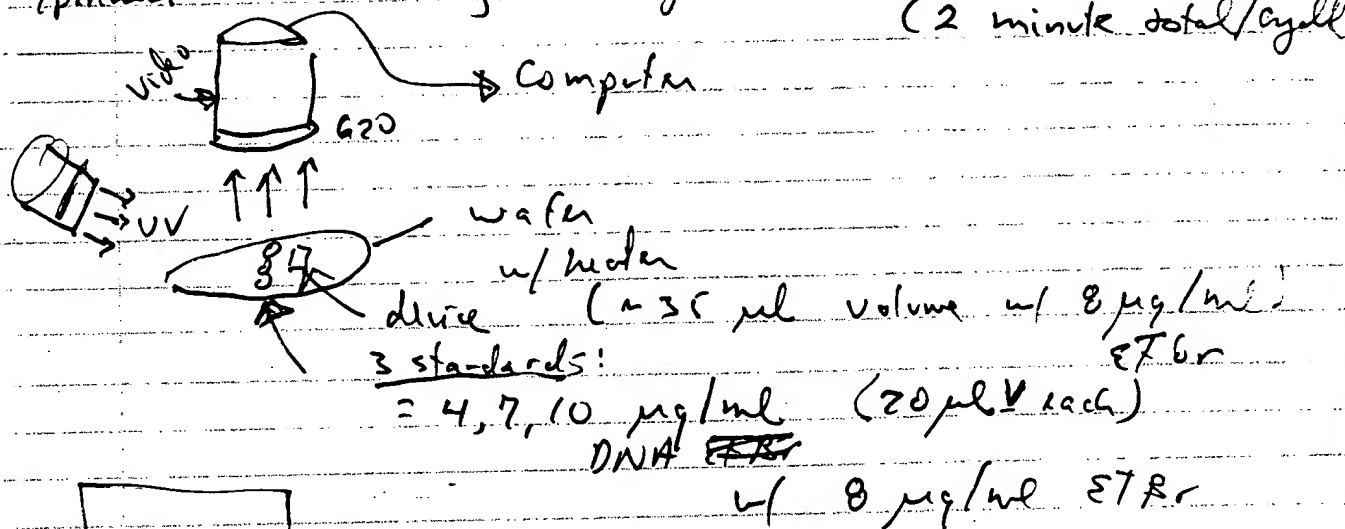 (2 minute total/cycle
video
Computer
620
UV
wafer
w/ heater
device (~35 µl volume w/ 8 µg/ml
ETBr
3 standards:
= 4, 7, 10 µg/ml (20 µl V each)
DNA ETBr
w/ 8 µg/ml ETBr